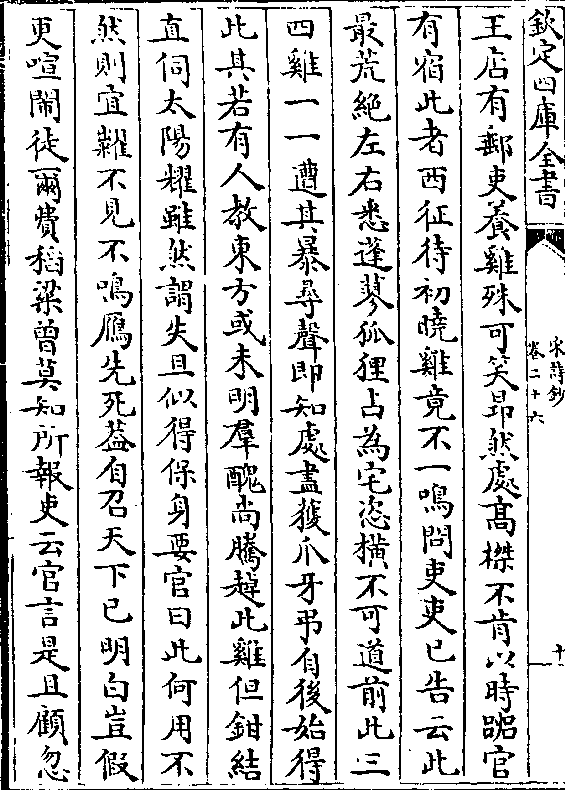 欽定四庫全書
宋詩鈔
卷二十六
十
王店有郵吏養雞殊可笑昻然處髙榤不肯以時嘂官
有宿此者西征待初曉雞竟不一鳴問吏吏已告云此
最荒絶左右悉蓬蓼狐狸占為宅恣横不可道前此三
四雞一一遭其暴尋聲即知處盡獲爪牙弔自後始得
此其若有人教東方或未明羣醜尚騰趠此雞但鉗結
直伺太陽耀雖然謂失旦似得保身要官曰此何用不
然則宜糶不見不鳴鴈先死葢自召天下已明白豈假
更喧鬧徒爾費稻粱曽莫知所報吏云官言是且顧忽